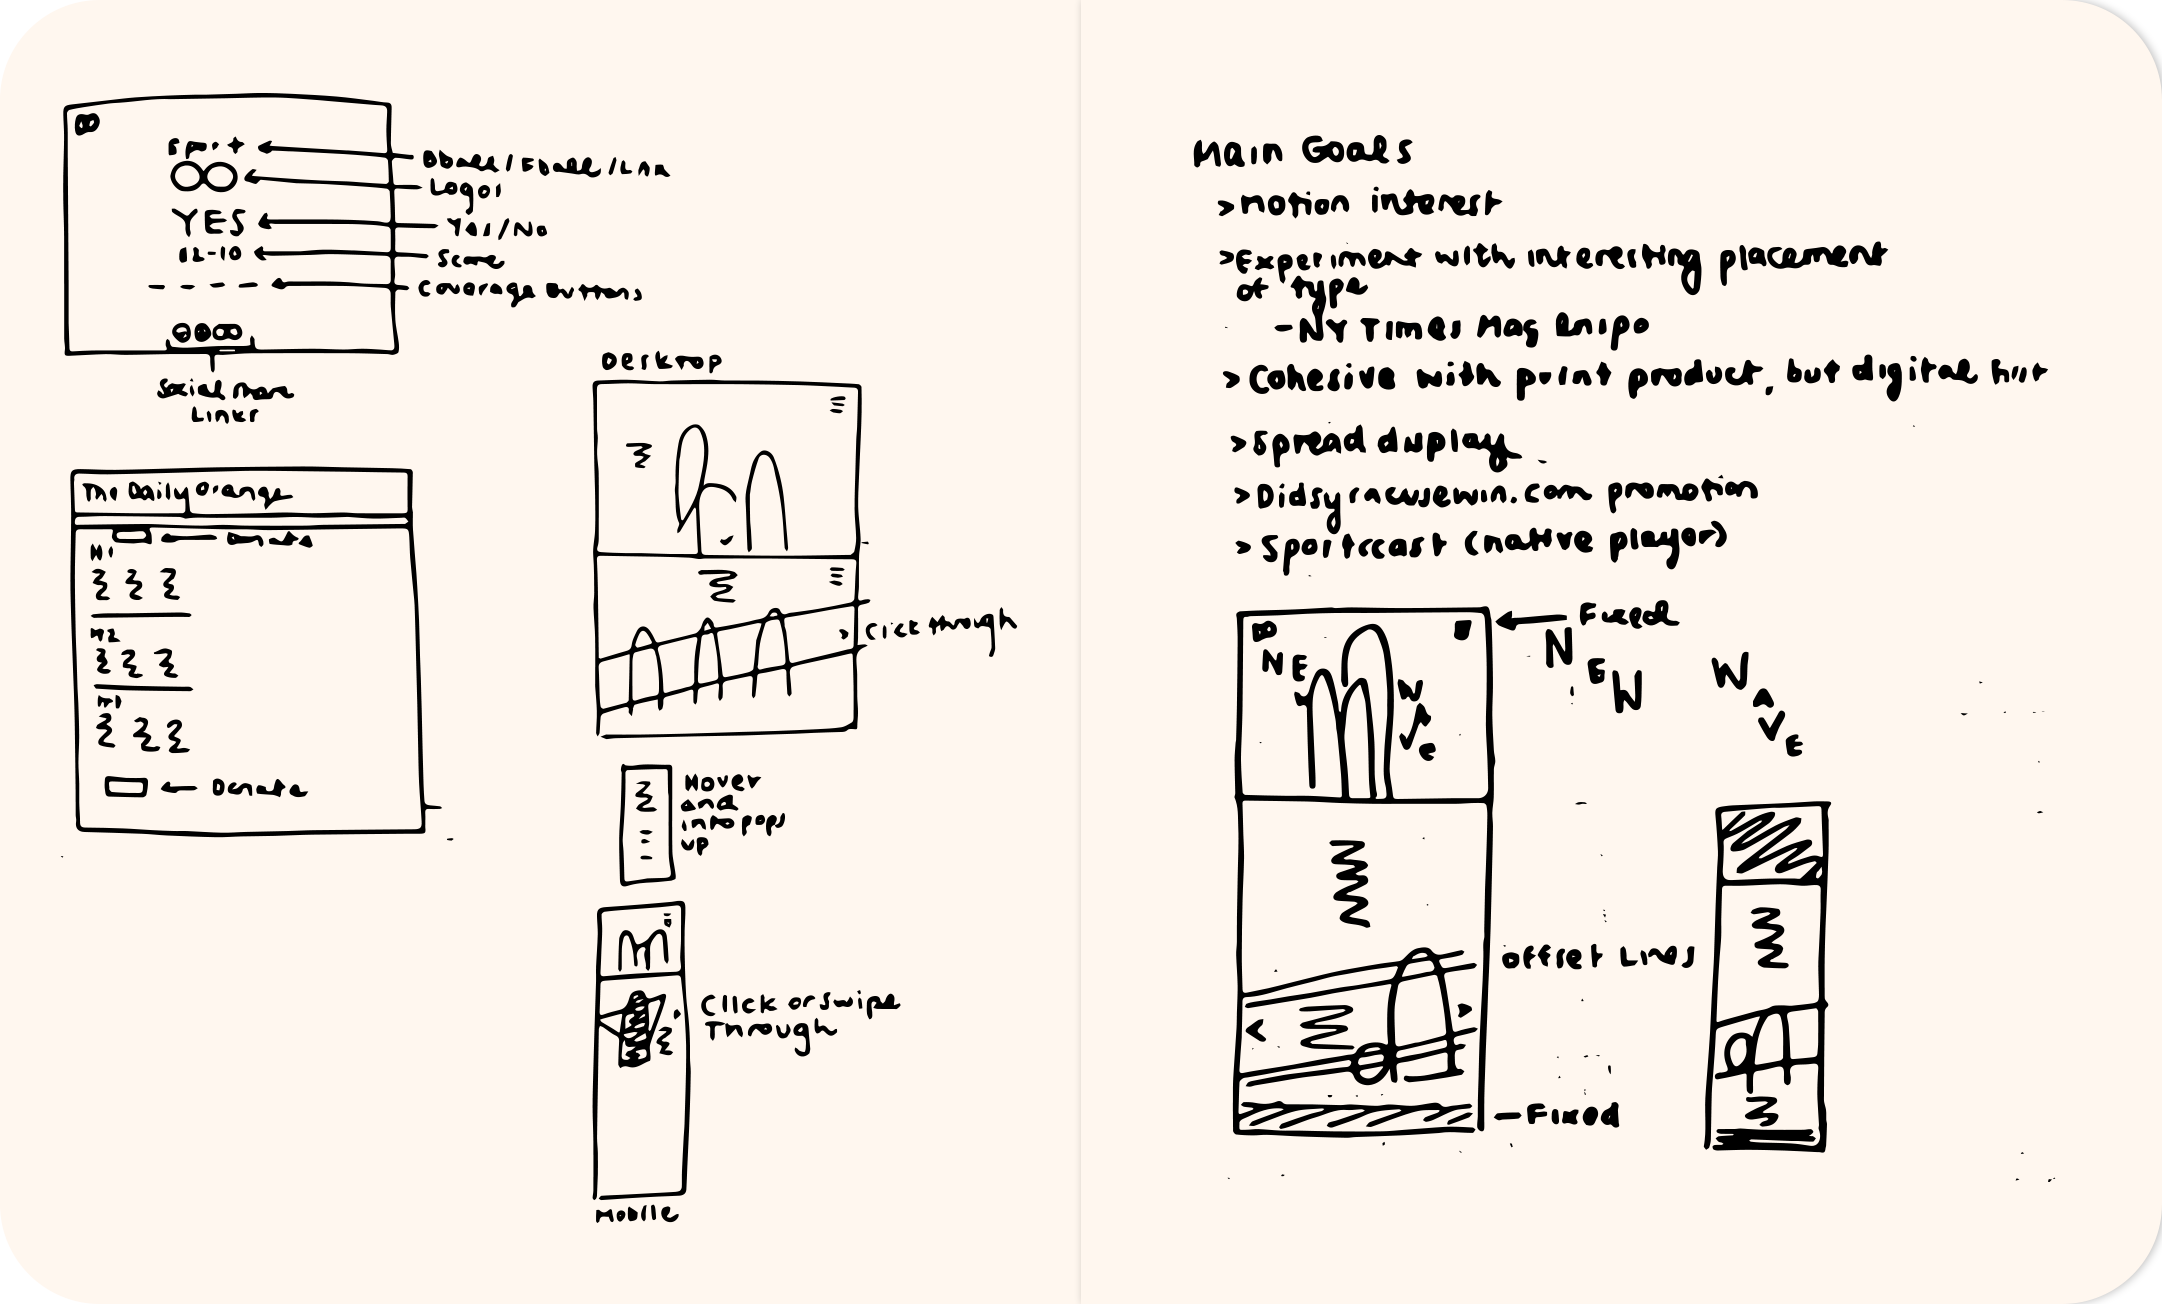 Sport
YES
12-10
Bball/Fball/LAX
Logos
Yes/No
Score
Coverage Buttons
Social media
Links
The Daily Orange
Donate
H1
H2
Donate
Desktop
Click through
Hover
and
info pops
up
Click or swipe
Through
Mobile
Main Goals
>Motion interest
>Experiment with interesting placement
of type
-NY Times Mag
>Cohesive with print product, but digital first
>Spread display
>Didsyracusewin.com promotion
>Sportscast (native player)
Fixed
NE
W
WAVE
NEW WAVE
offset Lines
-Fixed